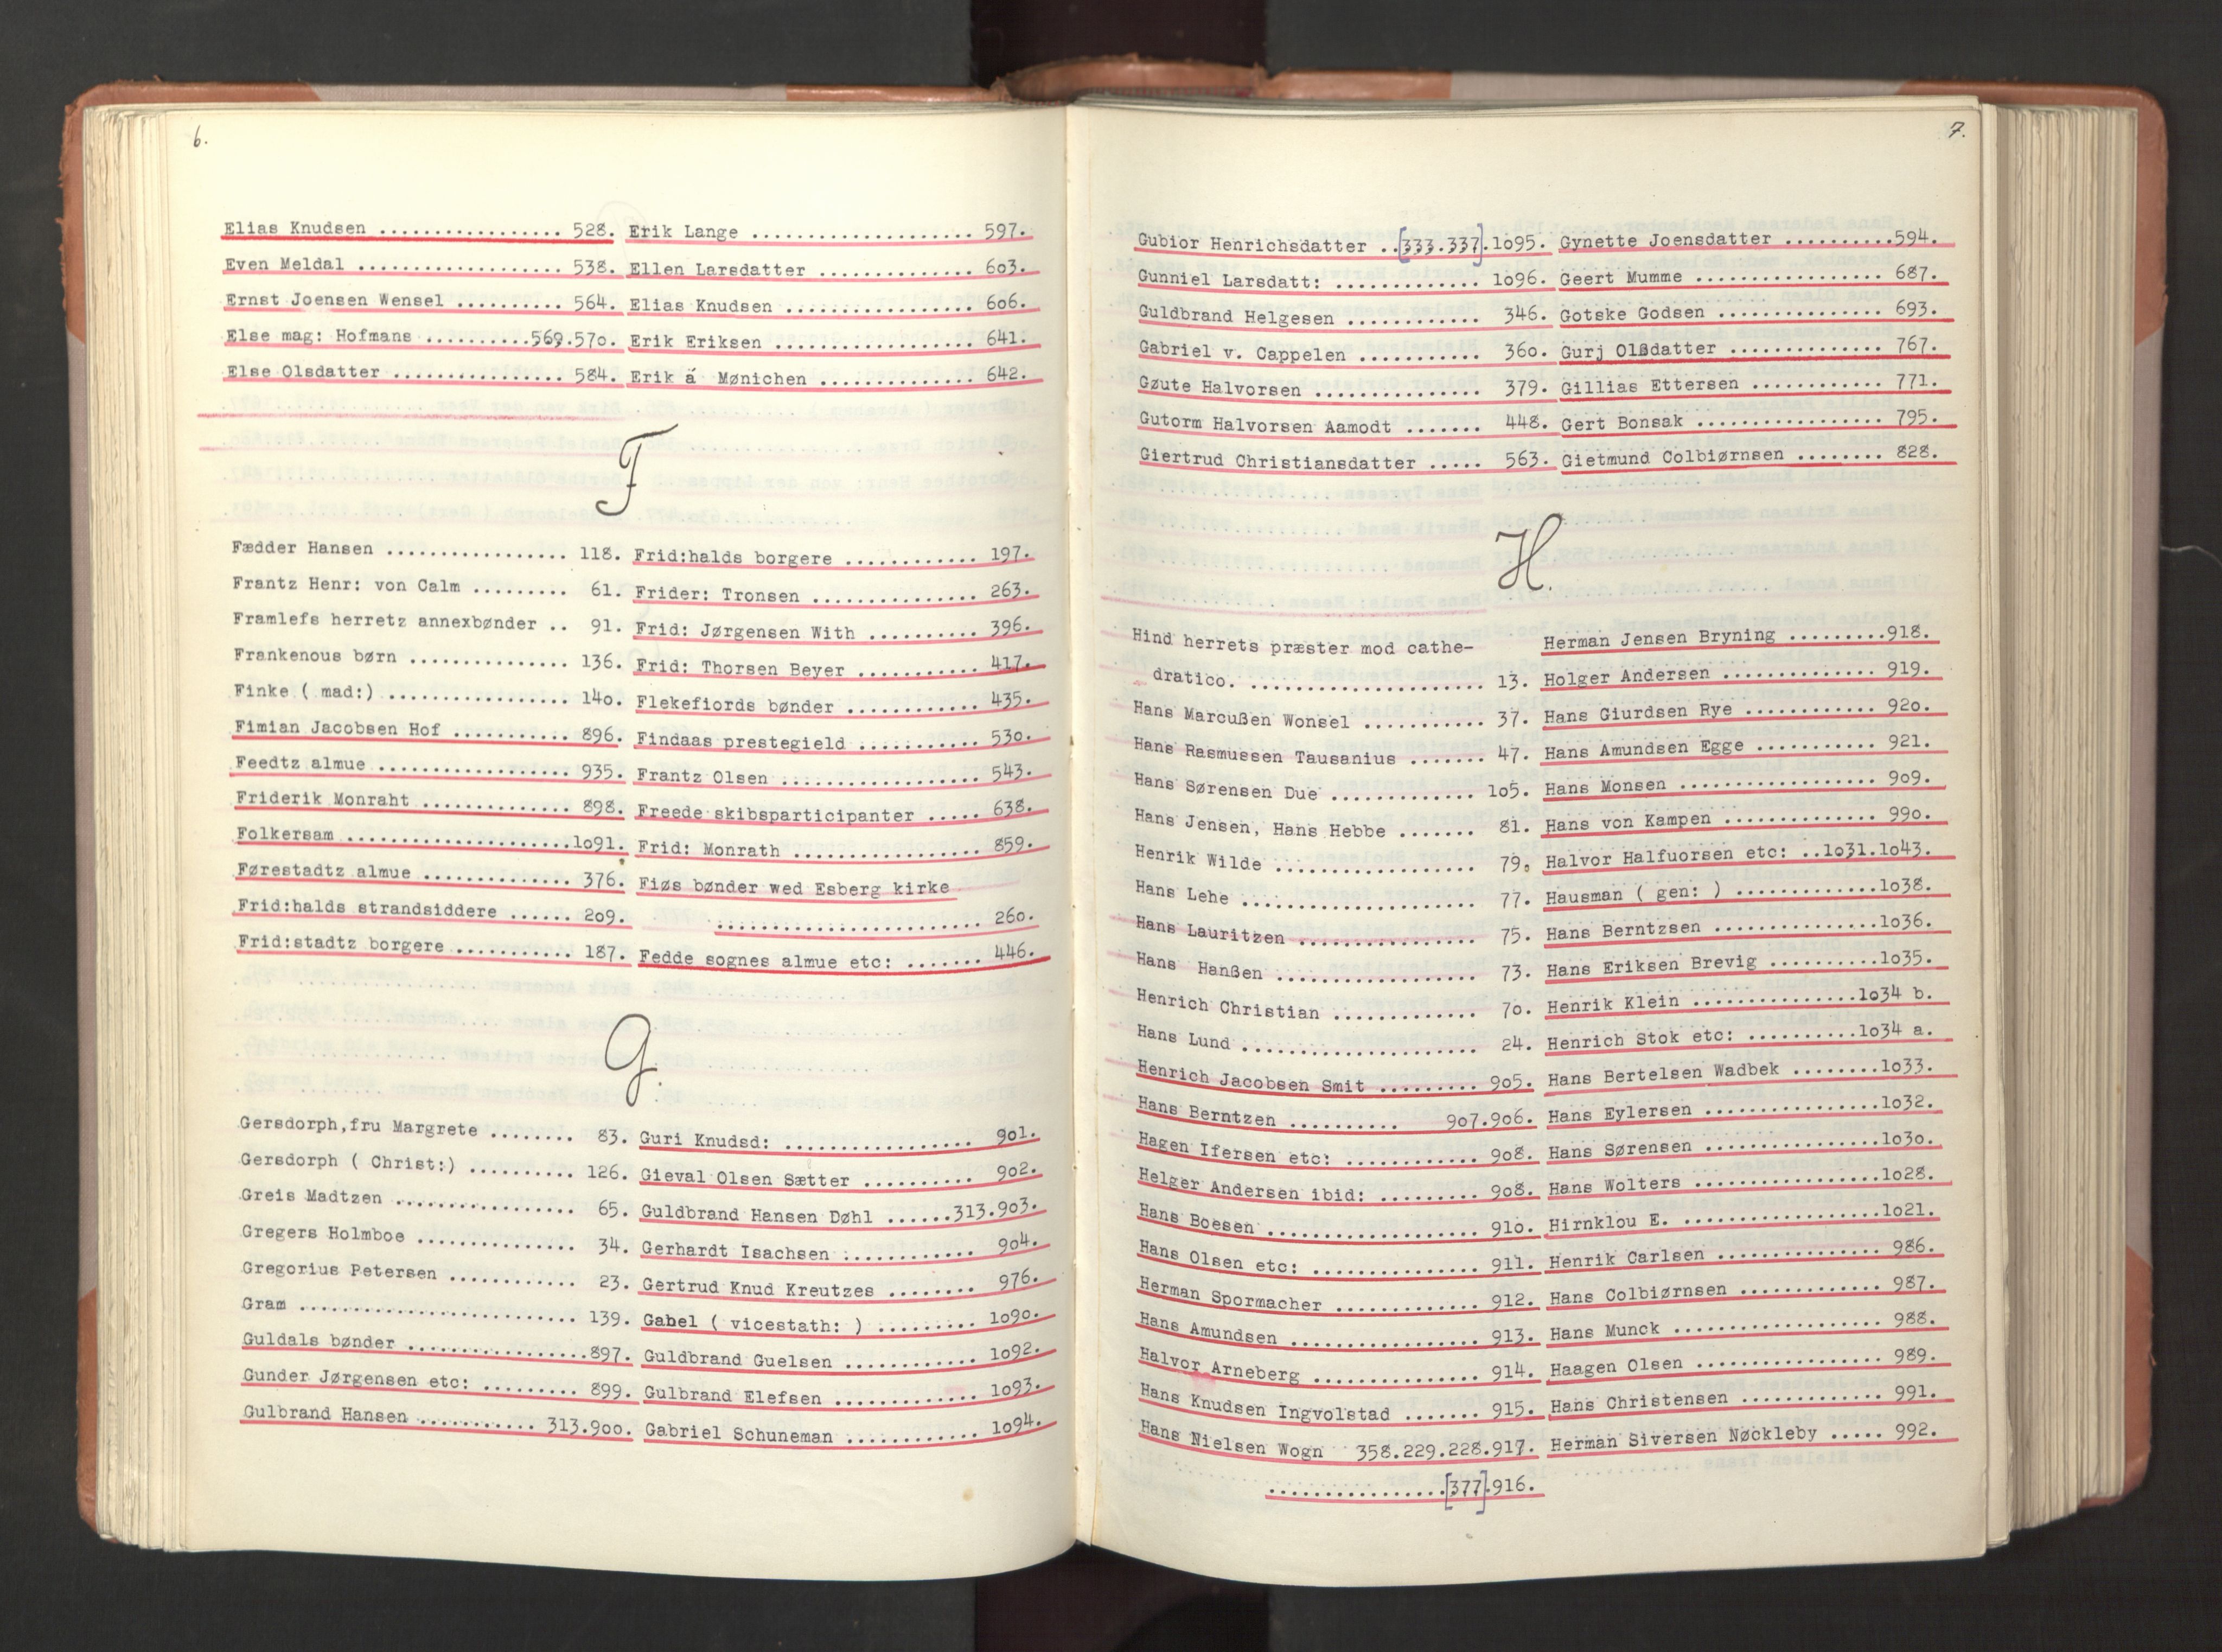 6.
Elias Knudsen ................. 528.
Even Meldal ................... 538.
Ernst Joensen Wensel .......... 564.
Else mag: Hofmans ..........569.570.
Else Olsdatter ................ 584.
Erik Lange ..................... 597.
Ellen Larsdatter ............... 603.
Elias Knudsen .................. 606.
Erik Eriksen ................... 641.
Erik á Mønichen ............... 642.
F
Fædder Hansen ................. 118.
Frantz Henr: von Calm ......... 61.
Framlefs herretz annexbønder .. 91.
Frankenous børn ............... 136.
Finke ( mad:) ................. 140.
Fimian Jacobsen Hof ........... 896.
Feedtz almue .................. 935.
Friderik Monraht .............. 898.
Folkersam .....................1091.
Førestadtz almue .............. 376.
Frid:halds strandsiddere ...... 209.
Frid:stadtz borgere ........... 187.
Frid:halds borgere ............. 197.
Frider: Tronsen ................ 263.
Frid: Jørgensen With ........... 396.
Frid: Thorsen Beyer ............ 417.
Flekefiords bønder ............. 435.
Findaas prestegield ............ 530.
Frantz Olsen ................... 543.
Freede skibsparticipanter ..... 638.
Frid: Monrath .................. 859.
Fiøs bønder wed Esberg kirke
........................ 260.
Fedde sognes almue etc: ....... 446.
G.
Gersdorph,fru Margrete ........ 83.
Gersdorph ( Christ:) .......... 126.
Greis Madtzen ................. 65.
Gregers Holmboe ............... 34.
Gregorius Petersen ............ 23.
Gram .......................... 139.
Guldals bønder .................897.
Gunder Jørgensen etc: ......... 899.
Gulbrand Hansen ........... 313.900.
Guri Knudsd: .................. 901.
Gieval Olsen Sætter ........... 902.
Guldbrand Hansen Døhl ......313.903.
Gerhardt Isachsen :........... 904.
Gertrud Knud Kreutzes ........ 976.
Gabel ( vicestath: ) ......... 1090.
Guldbrand Guelsen ............ 1092.
Gulbrand Elefsen ............. 1093.
Gabriel Schuneman ............ 1094.
7.
Gubior Henrichsdatter ..[333.337].1095.
Gunniel Larsdatt: ............. 1096.
Guldbrand Helgesen ............ 346.
Gabriel v. Cappelen ........... 360.
Gøute Halvorsen ............... 379.
Gutorm Halvorsen Aamodt ....... 448.
Giertrud Christiansdatter ..... 563.
Gynette Joensdatter ..........594.
Geert Mumme .................. 687.
Gotske Godsen ................ 693.
Gurj Olßdatter ............... 767.
Gillias Ettersen ............. 771.
Gert Bonsak .................. 795.
Gietmund Colbiørnsen ......... 828.
H.
Hind herrets præster mod cathe-
dratico. ...................... 13.
Hans Marcußen Wonsel ........... 37.
Hans Rasmussen Tausanius ....... 47.
Hans Sørensen Due ............. 105.
Hans Jensen, Hans Hebbe ....... 81.
Henrik Wilde .................. 79.
Hans Lehe ..................... 77.
Hans Lauritzen ................ 75.
Hans Hanßen .................. 73.
Henrich Christian ............. 70.
Hans Lund ..................... 24.
Henrich Jacobsen Smit ......... 905.
Hans Berntzen .......... 907.906.
Hagen Ifersen etc: ............ 908.
Helger Andersen ibid: ......... 908.
Hans Boesen ................... 910.
Hans Olsen etc: ............... 911.
Herman Spormacher ............. 912.
Hans Amundsen ................. 913.
Halvor Arneberg ............... 914.
Hans Knudsen Ingvolstad ....... 915.
Hans Nielsen Wogn 358.229.228.917.
.................[377].916.
Herman Jensen Bryning .........918.
Holger Andersen .............. 919.
Hans Giurdsen Rye ............ 920.
Hans Amundsen Egge ........... 921.
Hans Monsen .................. 909.
Hans von Kampen .............. 990.
Halvor Halfuorsen etc: ..1031.1043.
Hausman ( gen: ) .............1038.
Hans Berntzsen ...............1036.
Hans Eriksen Brevig ..........1035.
Henrik Klein ...............1034 b.
Henrich Stok etc: ..........1034 a.
Hans Bertelsen Wadbek ........1033.
Hans Eylersen ................1032.
Hans Sørensen ................1030.
Hans Wolters .................1028.
Hirnklou E. ..................1021.
Henrik Carlsen ............... 986.
Hans Colbiørnsen ............. 987.
Hans Munck ................... 988.
Haagen Olsen ................. 989.
Hans Christensen ............. 991.
Herman Siversen Nøckleby ..... 992.